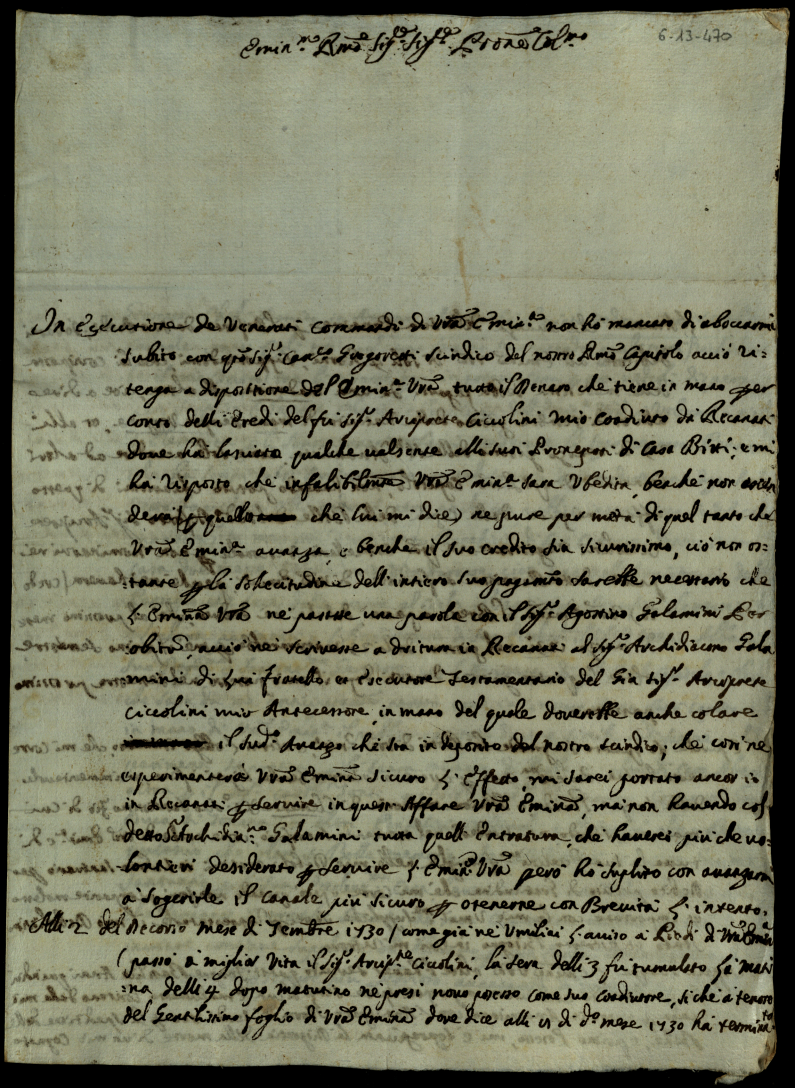 6-13-470
Emin.mo Rmo Sig.re Sig.re Prone Col.mo
In Esecutione de Venerati Commandi di Vra Emin.za non hò mancato di aboccarmi
subito con qto Sig.r Can.co Gregoretti Scindico del nostro Rmo Capitolo acciò ri=
tenga a dispositione dell Emin.za Vra tutto il Denaro che tiene in mano per
conto delli Eredi del fù Sig.r Arciprete Ciccolini mio Coadiuto da Recanati
dove hà lasciato qualche valsente alli suoi Pronepoti di Casa Bitti; e mi
hà risposto che infalibilmte Vra Emin.za sara Ubedita, benche non ascen
de che lui mi dice) ne pure per metà di quel tanto che
Vra Emin.za avanza, e benche il suo credito sia sicurissimo, ciò non os=
tante p la solecitudine dell'intiero suo pagamto sarebbe necessario che
l'Emina Vra ne passasse una parola con il Sig.r Agostino Galamini Per
acciò ne scrivesse a dritura in Recanati al Sig.r Archidiacono Gala
mini di lui fratello et Esecutore Testamentario del Gia Sig.r Arciprete
Ciccolini mio Antecessore, in mano del quale doverebbe anche colare
il sud.o Avanzo che sta in deposito del nostro scindico; che così ne
esperimenterà Vra Emina sicuro l'Effetto, mi sarei portato ancor io
in Recanati p servire in questo Affare Vra Emina, mà non havendo col
detto Galamini tutta quell'Entratura, che haverei più che vo=
lontieri desiderato p servire l'Emin.za Vra però hò suplito con avanzarmi
a sogerirle il canale più sicuro p otenerne con Brevità l'intento.
Alli 2 del decorso mese di 1730 / come già ne Umiliai l'aviso a Piedi di Vra Emin.a
( passò a miglior Vita il Sig.r Arcip.te Ciccolini, la sera delli 3 fù tumulato la mati
=na delli 4 dopo matutino ne presi novo possesso come suo Coadiutore, si che a tenore
del Gentilissimo foglio di Vra Emina dove dice alli di d.o mese 1730 hà terminato